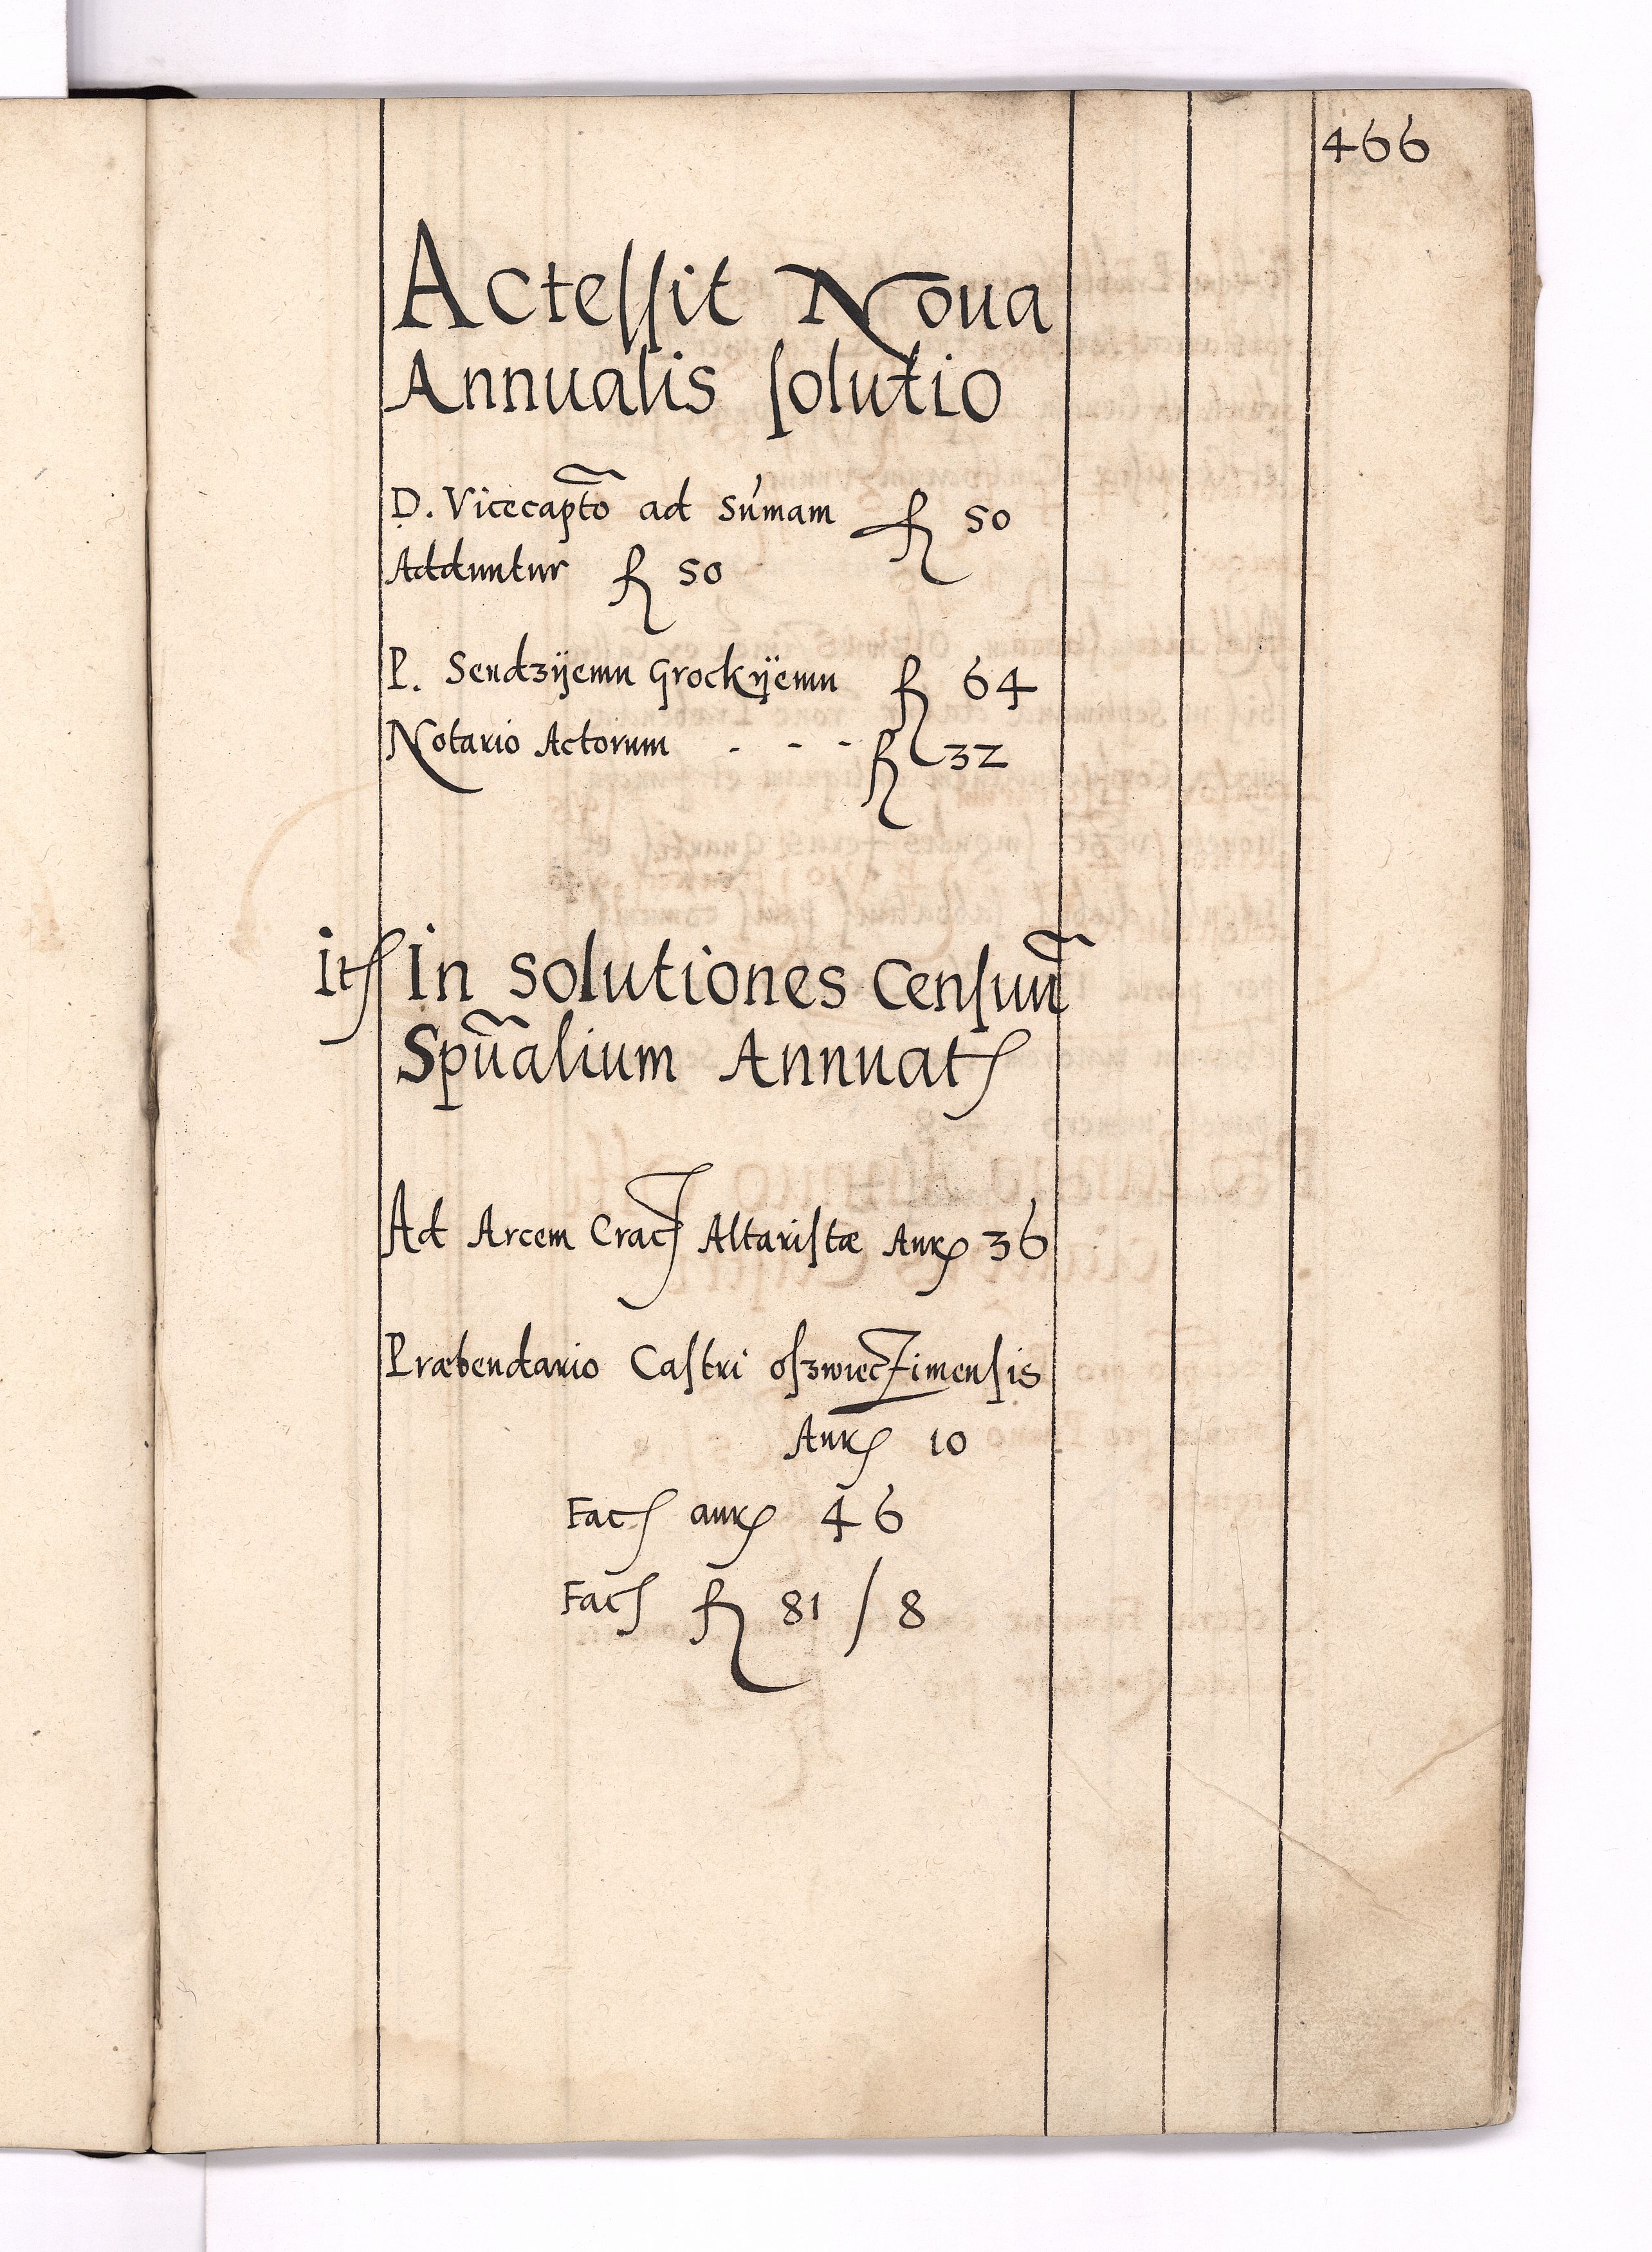 466
Actessit Noua
Annualis solutio
D. Vicecapto ad sumam fl 50
Adduntur fl 50
P. Sendzÿemu Grockÿemu fl 64
Notario Actorum - - - fl 32
It In solutiones Censuu
Spualium Annuat
Ad Arcem Crac Altaristæ Aur 36
Præbendario Castri oszwieczimensis
Aur 10
Fac aur 46
Fac fl 81 / 8